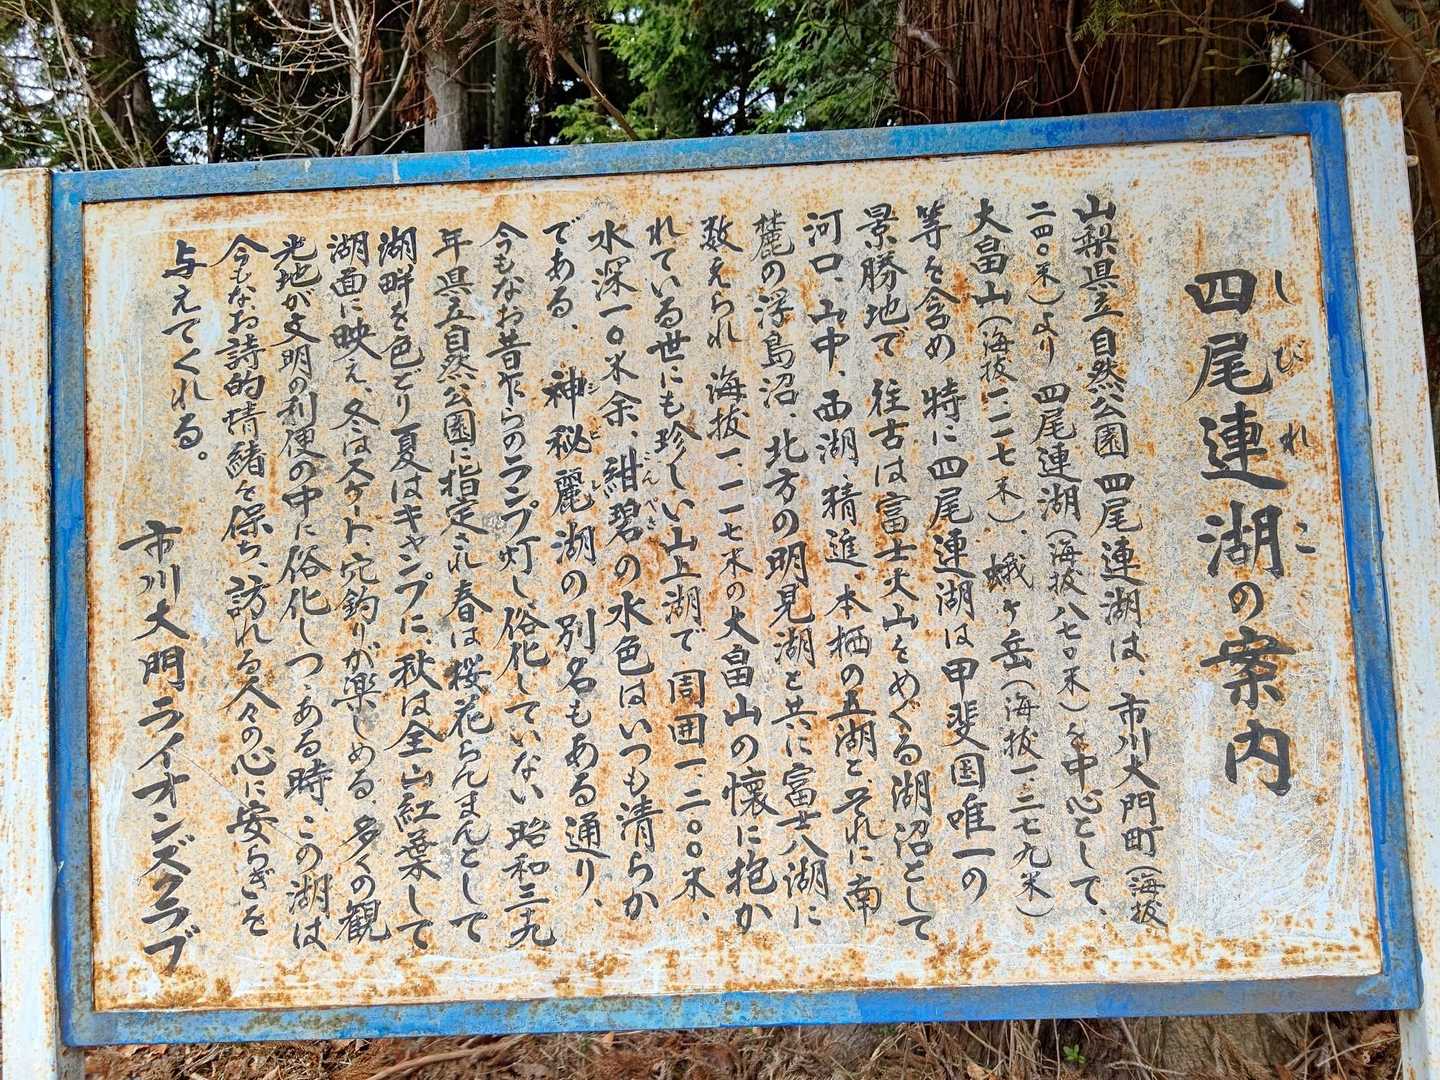 四尾連湖の案内
しびれこ
山梨県立自然公園 四尾連湖は、市川大門町(海抜
二四〇米)より 四尾連湖(海抜八八〇米)を中心として、
大畠山(海抜一一一七米)、蛾ヶ岳(海抜一、二七九米)
等を含め 特に四尾連湖は甲斐国唯一の
景勝地で 往古は富士火山をめぐる湖沼として
河口、山中、西湖、精進、本栖の五湖と、それに南
麓の浮島沼、北方の明見湖と共に富士八湖に
数えられ 海抜一、一一七米の大畠山の懐に抱か
れている世にも珍しい山上湖で 周囲一、二〇〇米、
水深一〇米余、紺碧の水色はいつも清らか
こんぺき
である、神秘麗湖の別名もある通り、
シビレ
今もなお昔乍らのランプ灯し俗化していない 昭和三十九
年県立自然公園に指定され春は桜花らんまんとして
湖畔を色どり夏はキャンプに、秋は全山紅葉して
湖面に映え、冬はスケート、穴釣りが楽しめる、多くの観
光地が文明の利便の中に俗化しつゝある時、この湖は
今もなお詩的情緒を保ち、訪れる人々の心に安らぎを
与えてくれる。
市川大門ライオンズクラブ